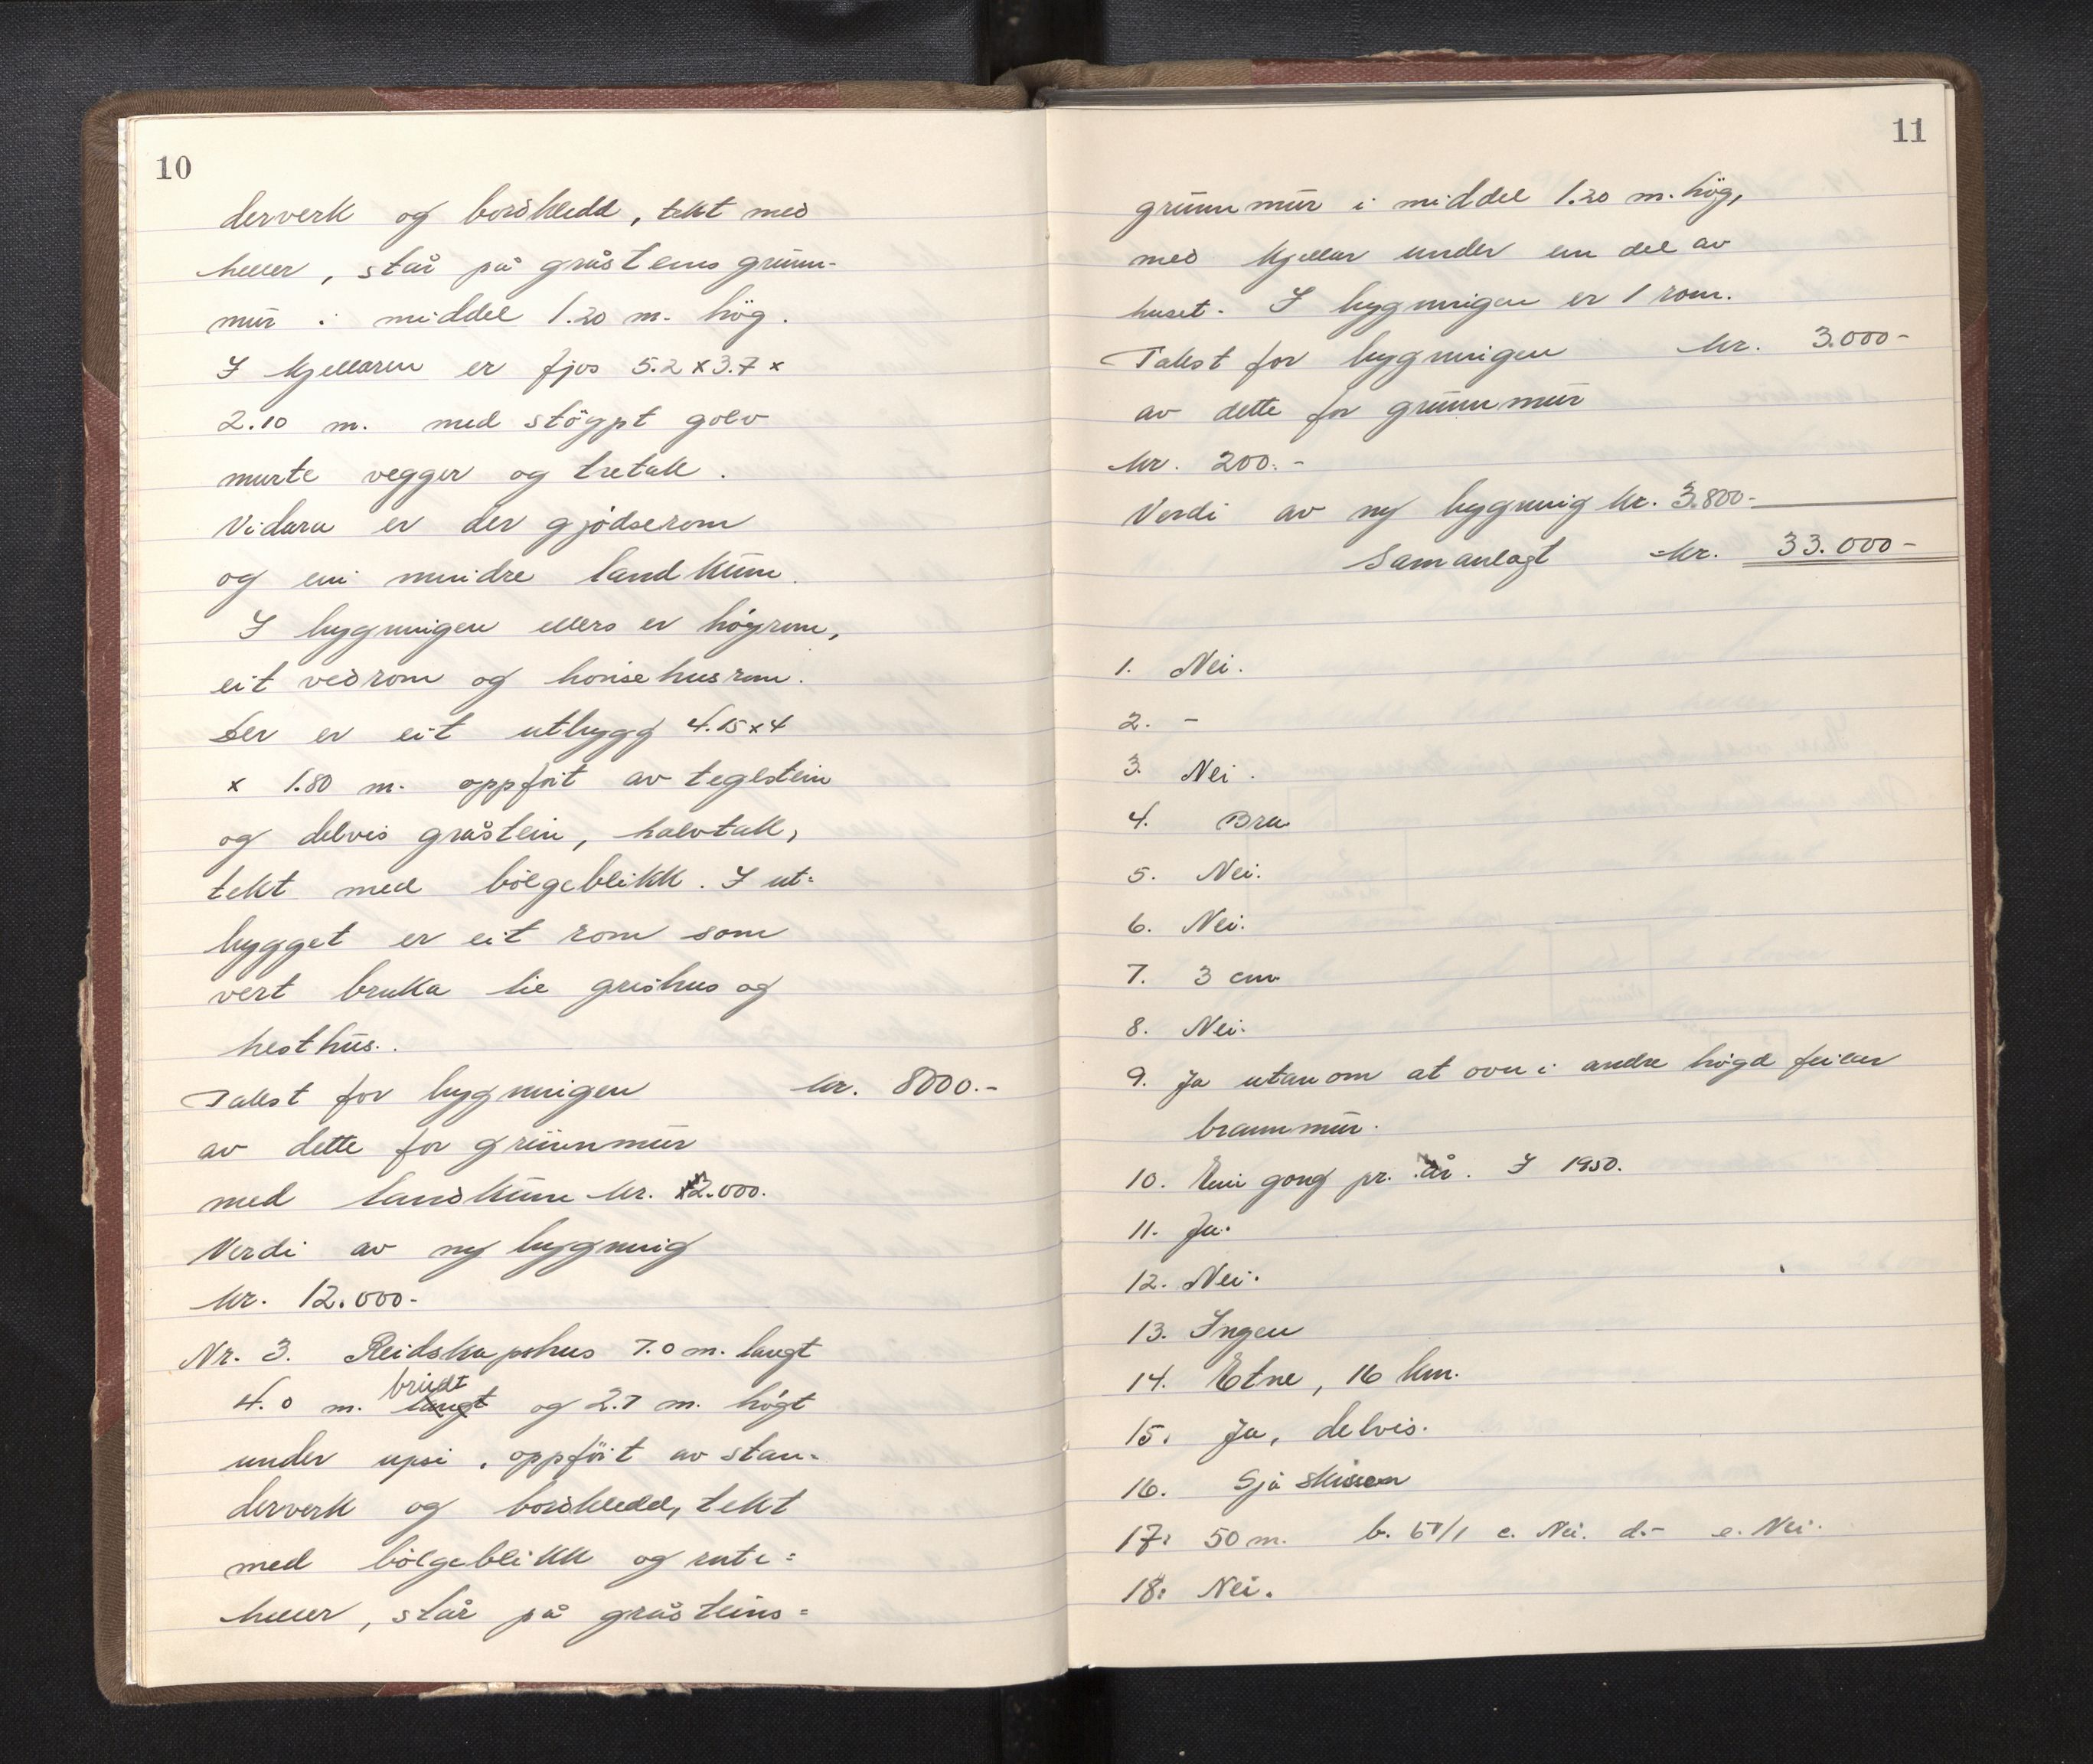 10
derverk og bordkledd, tekt med
heller, står på gråsteins grunn-
mur i middel 1.20 m. hög.
I kjellaren er fjos 5.2 x 3.7 x
2.10 m. med stöypt golv
murte vegger og tretak.
Vidare er der gjödselrom
og ein mindre landkum.
I bygningen ellers er höyrom,
eit vedrom og hönsehusrom.
Der er eit utbygg 4.15 x 4
x 1.80 m. oppfört av teglstein
og delvis gråstein, halvtak,
tekt med bölgeblikk. I ut=
bygget er eit rom som
vert bruka til grishus og
hesthus.
Takst for bygningen kr. 8000.-
av dette for grunnmur
med landkum kr. 2.000.
Verdi av ny bygning
kr. 12.000-
Nr. 3. Reidskapshus 7.0 m. langt
4.0 m. langt breidt og 2.7 m. högt
under upsi, oppföit av stan-
derverk og bordkledd, tekt
med bölgeblikk og rute=
heller, står på gråsteins=
11
grunnmur i middel 1.20 m. hög,
med kjellar under ein del av
huset. I bygningen er 1 rom.
Takst for bygningen kr. 3.000-
av dette for grunnmur
kr. 200.-
Verdi av ny bygning kr. 3.800-
Samanlagt kr. 33.000-
1. Nei.
2. -
3. Nei.
4. Bra
5. Nei.
6. Nei.
7. 3 cm
8. Nei.
9. Ja utanom at ovn i andre högd feilar
brannmur.
10. Ein gong pr. år. I 1950.
11. Ja.
12. Nei.
13. Ingen
14. Etne, 16 km.
15. Ja, delvis.
16. Sjå skissen
17. 50 m. b. c. Nei. d.- e. Nei.
18. Nei.